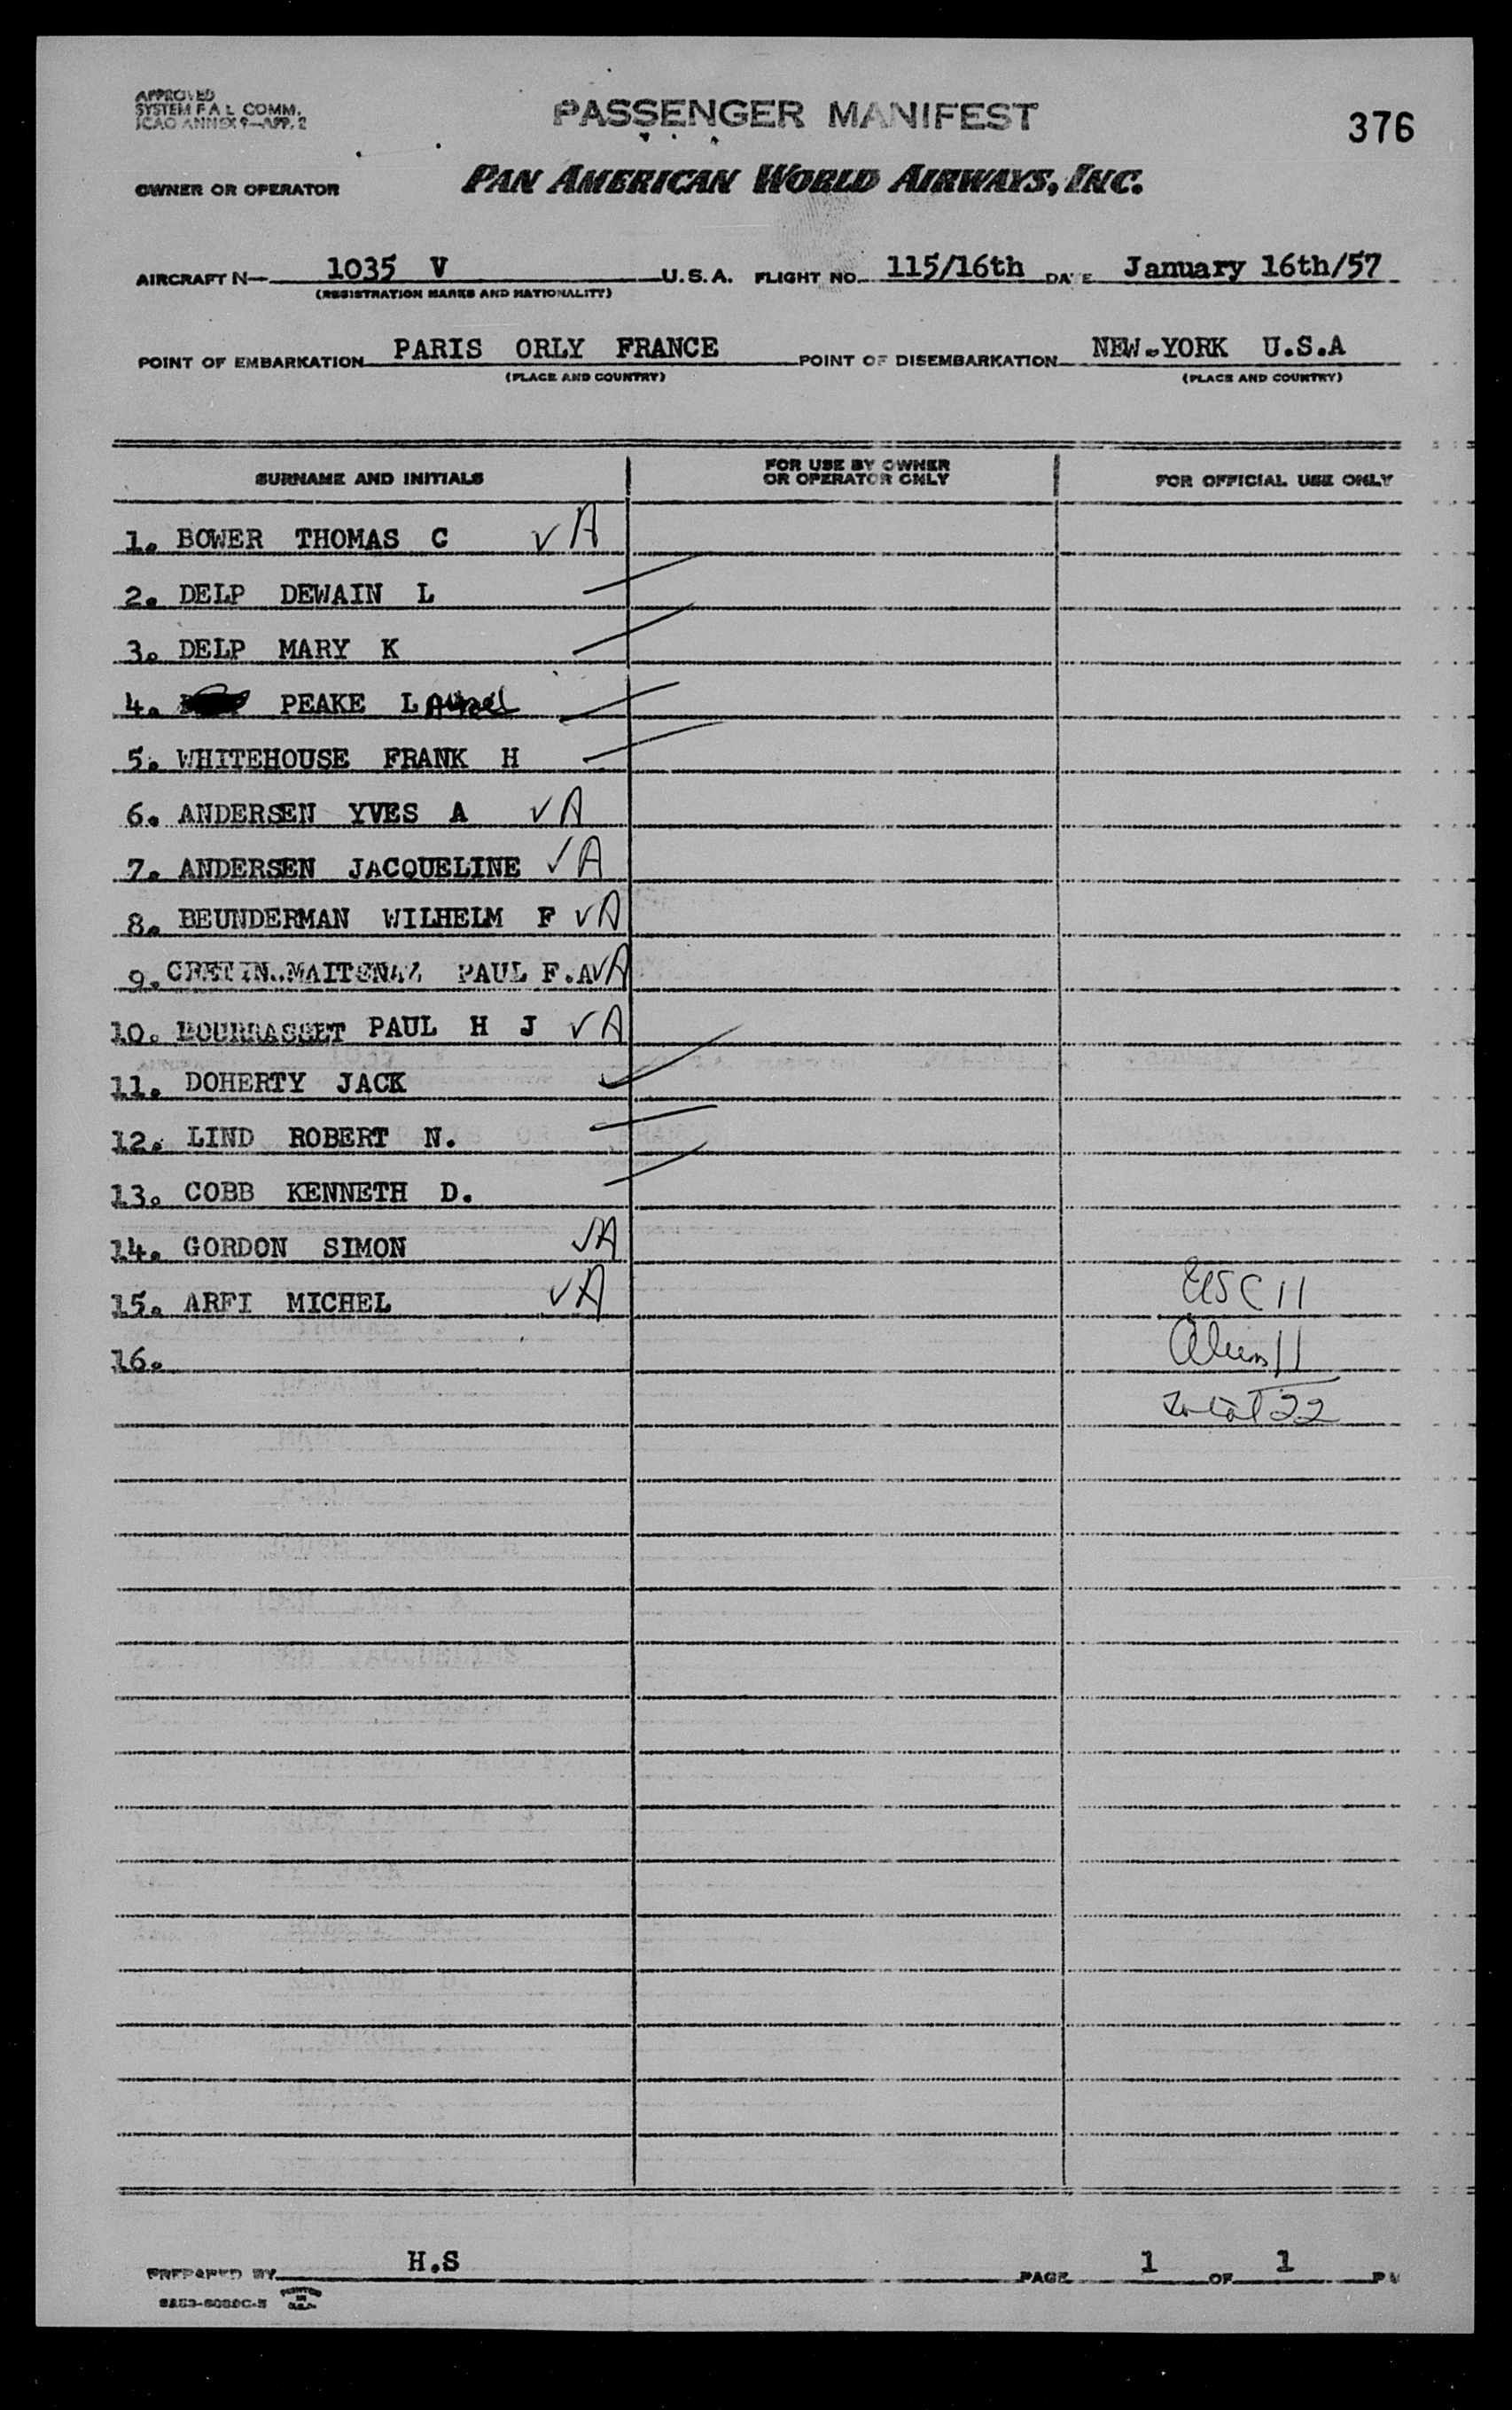 APPROVED
SYSTEM F A L COMM.
ICAO ANNEX 9—APP. 2
PASSENGER MANIFEST
376
OWNER OR OPERATOR PAN AMERICAN WORLD AIRWAYS, INC.
AIRCRAFT N— 1035 V U.S.A. FLIGHT NO. 115/16th DATE January 16th/57
(REGISTRATION MARKS AND NATIONALITY)
POINT OF EMBARKATION PARIS ORLY FRANCE POINT OF DISEMBARKATION NEW-YORK U.S.A
(PLACE AND COUNTRY) (PLACE AND COUNTRY)
SURNAME AND INITIALS FOR USE BY OWNER OR OPERATOR ONLY FOR OFFICIAL USE ONLY
1. BOWER THOMAS C ✓ A
2. DELP DEWAIN L
3. DELP MARY K
4. PEAKE L
5. WHITEHOUSE FRANK H
6. ANDERSEN YVES A ✓ A
7. ANDERSEN JACQUELINE ✓ A
8. BEUNDERMAN WILHELM F ✓ A
9. CRETIN-MAITENAZ PAUL F.A ✓ A
10. BOURRASSET PAUL H J ✓ A
11. DOHERTY JACK ✓
12. LIND ROBERT N.
13. COBB KENNETH D.
14. GORDON SIMON ✓ A
15. ARFI MICHEL ✓ A USC 11
16. Alien 11
total 22
PREPARED BY H.S PAGE 1 OF 1
PRINTED IN U.S.A.